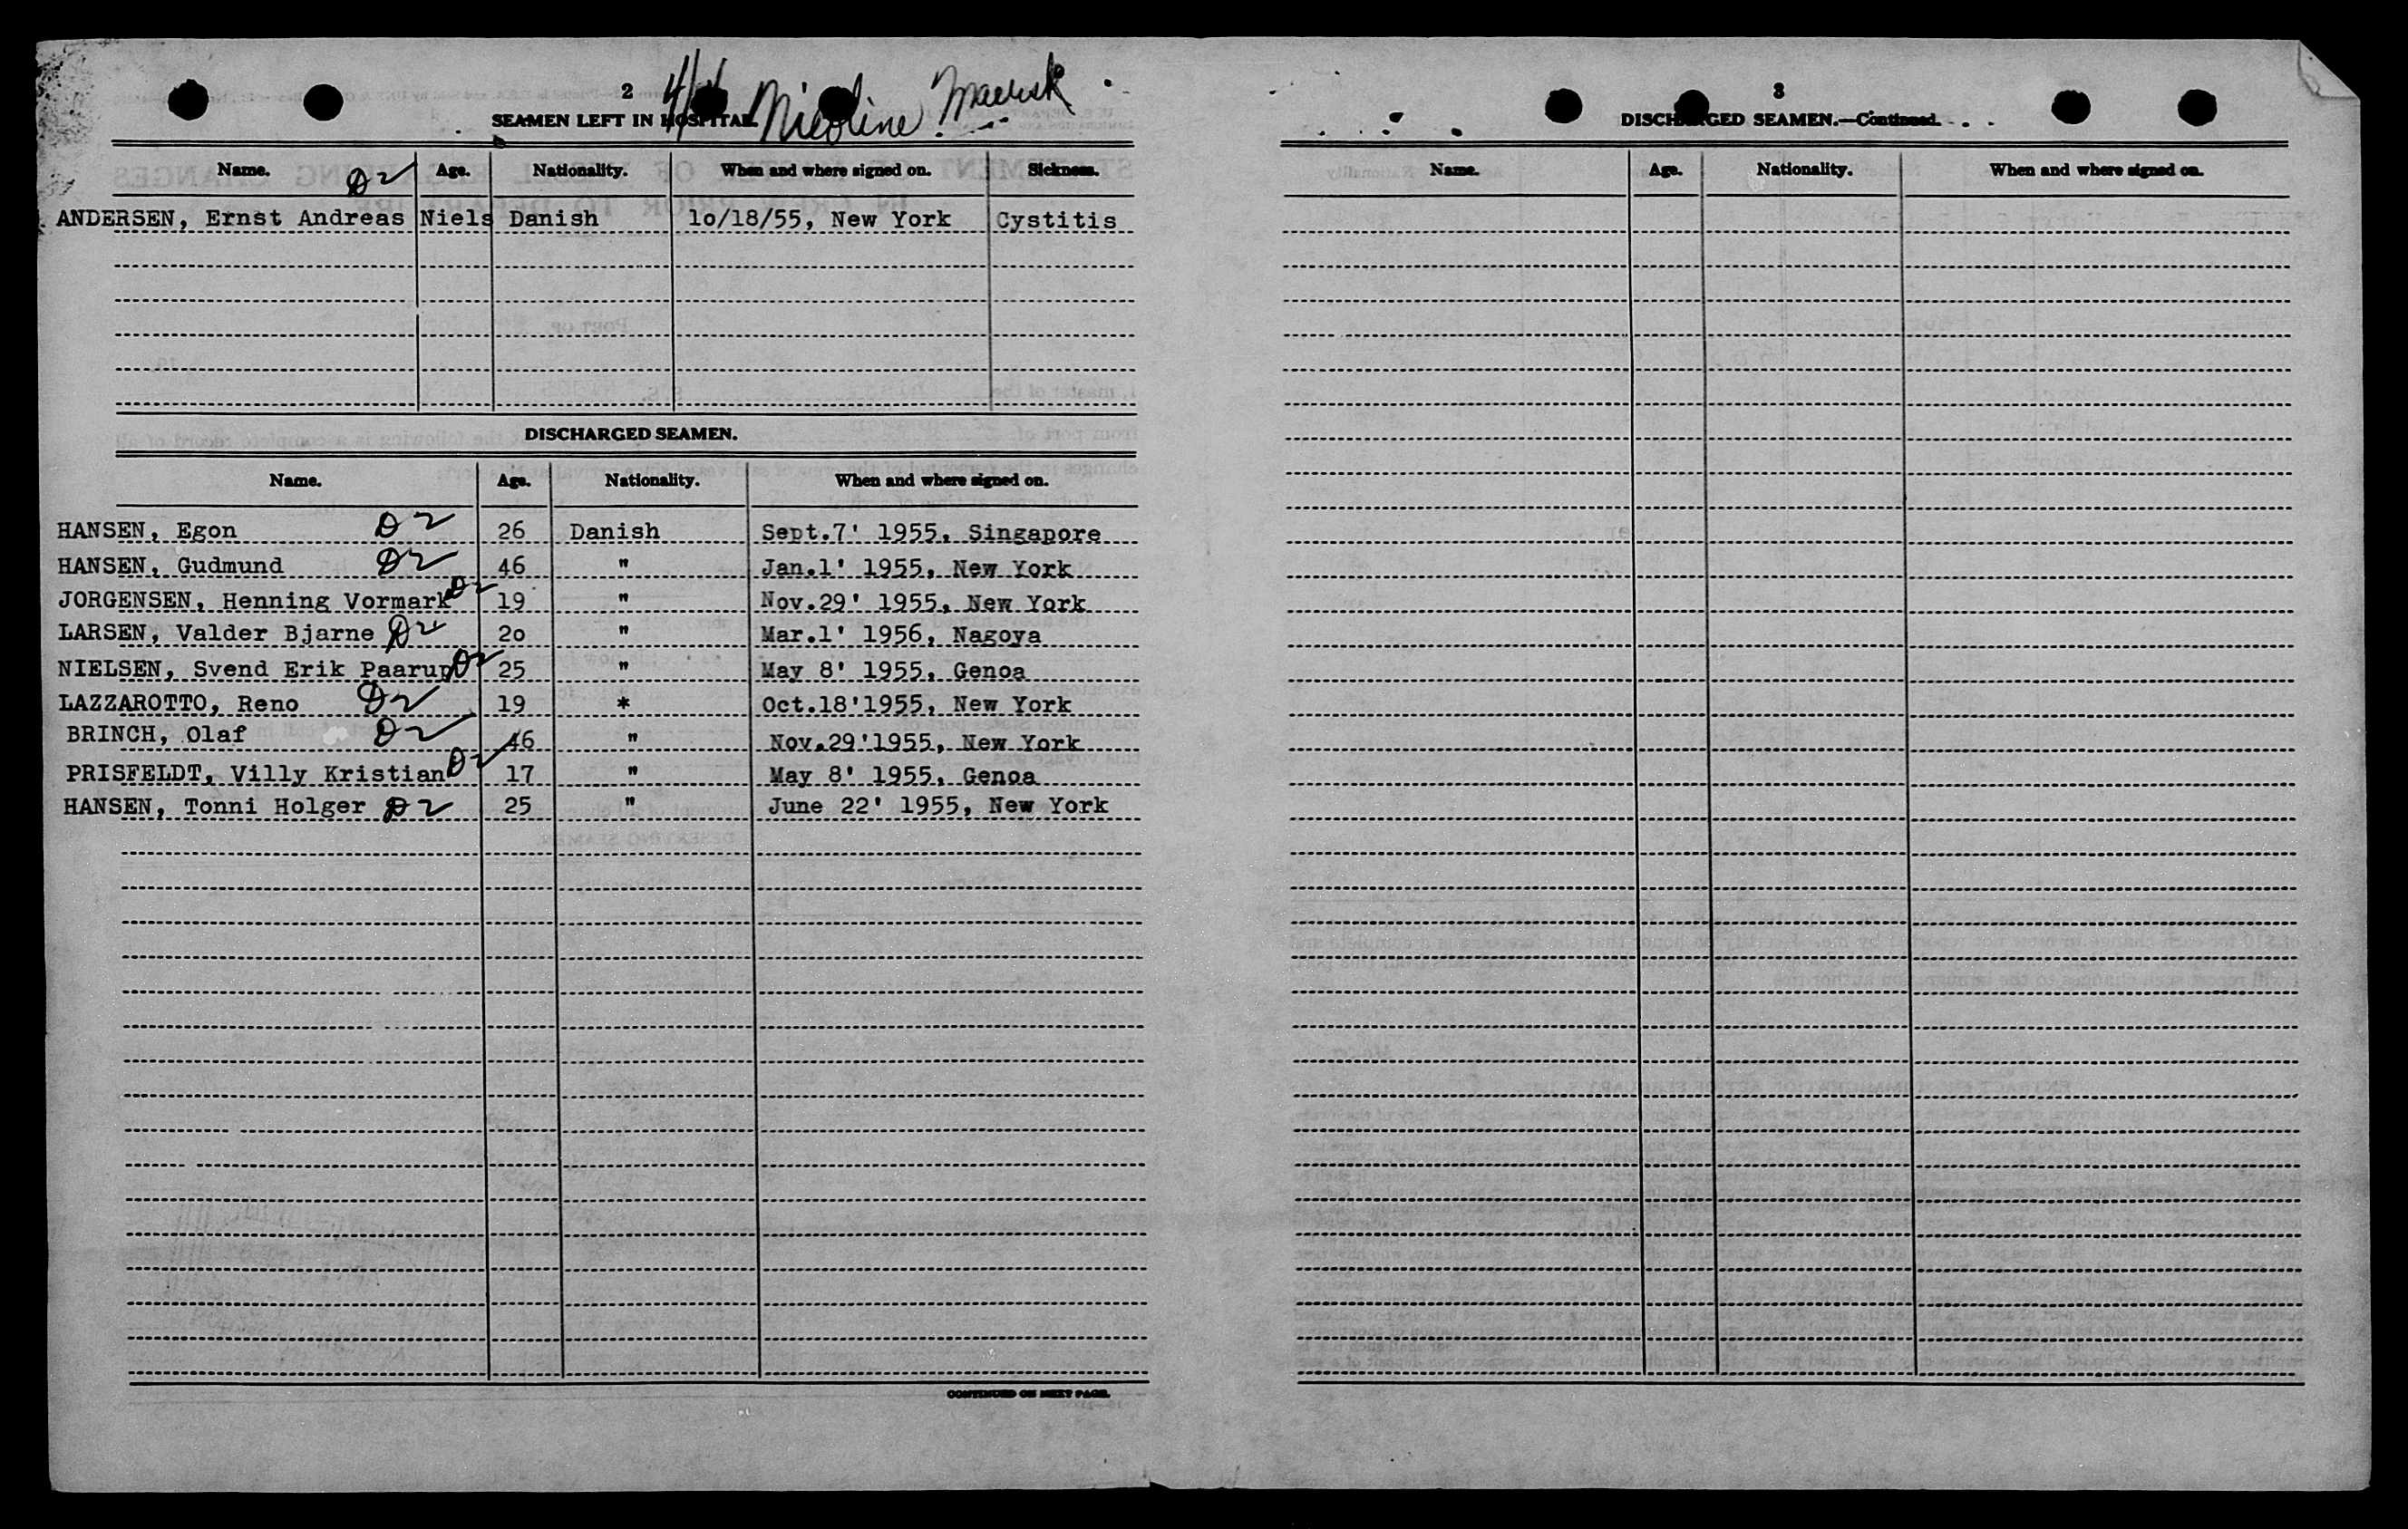 2
Nicoline Maersk
SEAMEN LEFT IN HOSPITAL.
Name. Age. Nationality. When and where signed on. Sickness.
D2
ANDERSEN, Ernst Andreas Niels Danish 1o/18/55, New York Cystitis
DISCHARGED SEAMEN.
Name. Age. Nationality. When and where signed on.
HANSEN, Egon D2 26 Danish Sept.7' 1955, Singapore
HANSEN, Gudmund D2 46 " Jan.1' 1955, New York
JORGENSEN, Henning Vormark D2 19 " Nov.29' 1955, New York
LARSEN, Valder Bjarne D2 2o " Mar.1' 1956, Nagoya
NIELSEN, Svend Erik Paarup D2 25 " May 8' 1955, Genoa
LAZZAROTTO, Reno D2 19 * Oct.18'1955, New York
BRINCH, Olaf D2 46 " Nov.29'1955, New York
PRISFELDT, Villy Kristian D2 17 " May 8' 1955, Genoa
HANSEN, Tonni Holger D2 25 " June 22' 1955, New York
CONTINUED ON NEXT PAGE.
3
DISCHARGED SEAMEN.—Continued.
Name. Age. Nationality. When and where signed on.